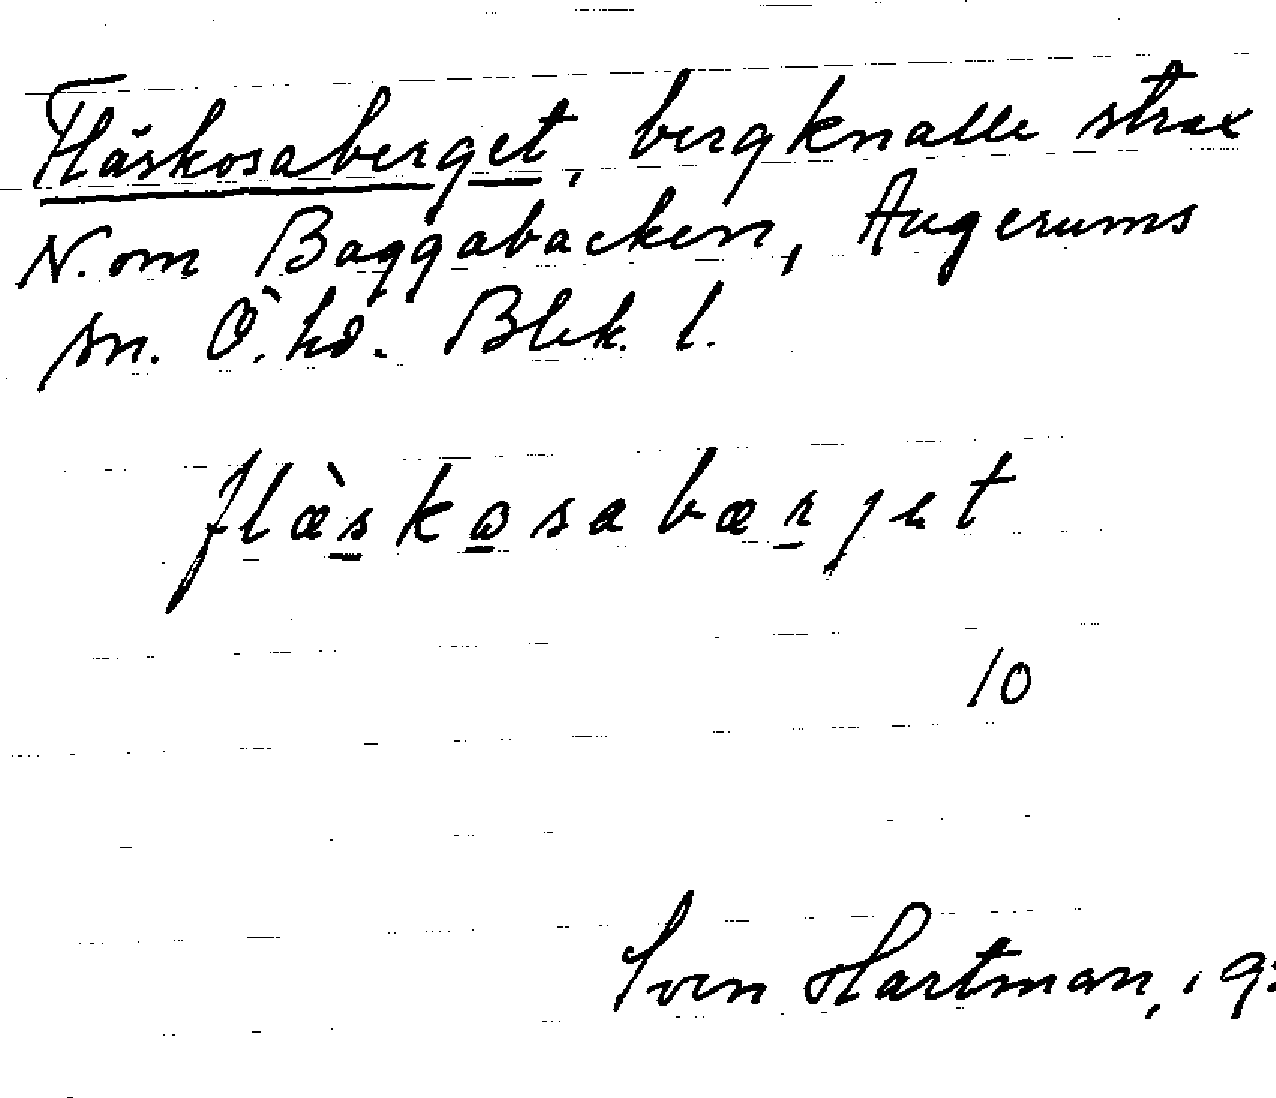 Fläskosaberget, bergknalle strax
N. om Baggabacken, Augerums
sn. Ö. hd. Blek. l.
flæ̀skosabærjet
10
Sven Hartman, 19